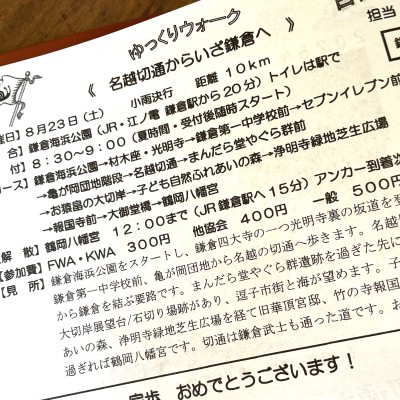 ゆっくりウォーク
担当
《 名越切通からいざ鎌倉へ 》
小雨決行 距離 10km
日】8月23日(土)
合】鎌倉海浜公園(JR・江ノ電 鎌倉駅から20分)トイレは駅で
付】8:30~9:00(夏時間・受付後随時スタート)
ース】鎌倉海浜公園→材木座・光明寺→鎌倉第一中学校前→セブンイレブン前
→亀が岡団地階段→名越切通→まんだら堂やぐら群前
→お猿畠の大切岸→子ども自然ふれあいの森→浄明寺緑地芝生広場
→報国寺前→大御堂橋→鶴岡八幡宮
解 散】鶴岡八幡宮 12:00まで(JR鎌倉駅へ15分)アンカー到着次
【参加費】FWA・KWA 300円 他協会 400円 一般 500円
【見 所】鎌倉海浜公園をスタートし、鎌倉四大寺の一つ光明寺裏の坂道を登
鎌倉第一中学校前、亀が岡団地から名越の切通へ歩きます。名越
から鎌倉を結ぶ要路です。まんだら堂やぐら群遺跡が過ぎた先に
大切岸展望台/石切り場跡があり、逗子市街と海が望めます。子
あいの森、浄明寺緑地芝生広場を経て旧華頂宮邸、竹の寺報国
過ぎれば鶴岡八幡宮です。切通は鎌倉武士も通った道です。お
完歩 おめでとうございます!